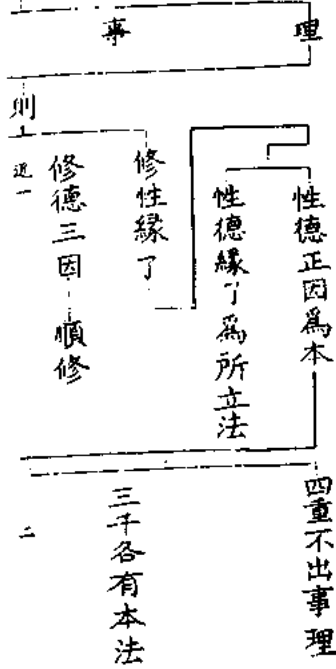 理
事
則
近一
性德正因為本
性德緣了為所立法
修性緣了
修德三因 順修
四重不出事理
三千各有本法
二